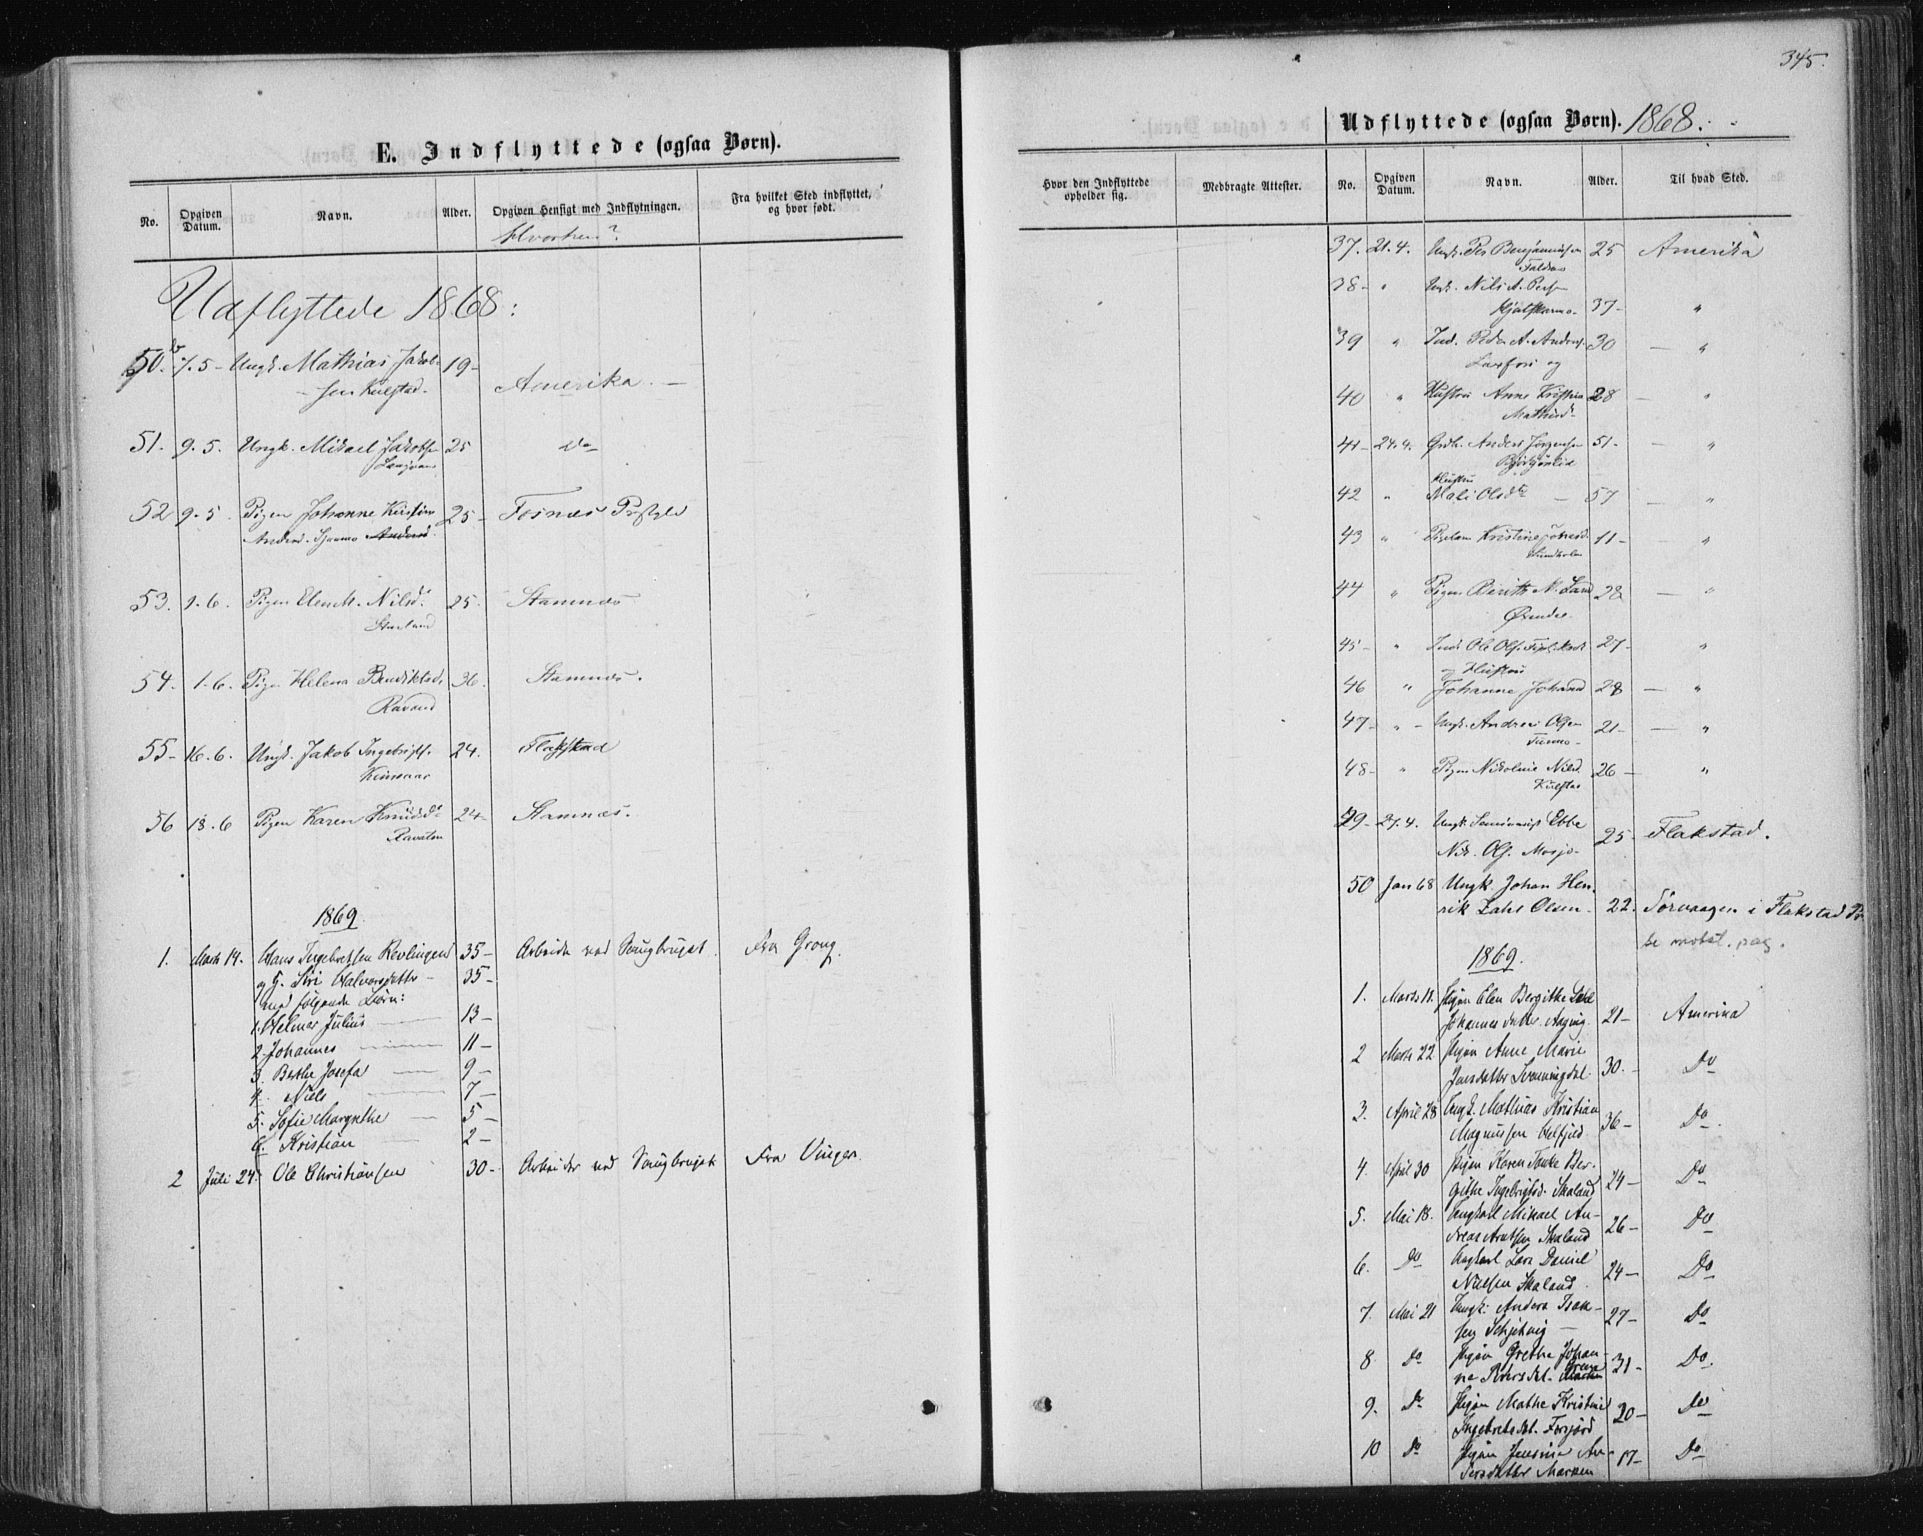 E. Indflyttede (ogsaa Børn).
No. Opgiven Datum. Navn. Alder. Opgiven Hensigt med Indflytningen. Fra hvilket Sted indflyttet, og hvor født.
Hvorhen?
Udflyttede 1868:
50. 7.5 - Ungk. Mathias Jakob- 19 -
sen Kulstad.
Amerika. -
51. 9.5. Ungk. Mikael Jakobsen 25 Do
52 9.5. Pigen Johanne Kirstine 25 - Fosnæs Præstgld
Anders.
53. 1.6. Pigen Elen M. Nilsd. 25. Stamnæs
54. 1.6. Pigen Helena Bendiktsd. 36. Stamnæs.
Ravand
55 - 16.6. Ungk. Jakob Ingebrigts. 24. Flakstad
56 13.6 Pigen Karen Knudsd. 24 - Stamnæs.
1869.
1. Marts 14. Hans Ingebretsen Revlingen 35 - Arbeide ved Saugbruget. Fra Grong.
og H. Siri Halvorsdatter - 35 -
med følgende Børn:
1. Helmer Julius 13 -
2. Johannes 11 -
3. Berthe Josefa 9 -
4. Niels 7 -
5. Sofie Margrethe 5 -
6. Kristian 2 -
2 Juli 24. Ole Christiansen 30 - Arbeider ved Saugbruget Fra Vinger.
345.
Udflyttede (ogsaa Børn). 1868.
Hvor den Indflyttede opholder sig. Medbragte Attester. No. Opgiven Datum. Navn. Alder. Til hvad Sted.
37. 21.4. Ungk. Per Benjaminsen 25 Amerika
38 - " Ungk. Nils A. Pers.
37 - "
39 " Ind. Peder A. Anders. 30 - "
og
40 " Hustru Anne Kristina 28 - "
Mathisd.
41 - 24.4. Anders Jørgensen 51 - "
Hustru
42 " Mali Olsdtr - 57 - "
43 " Kristine 11 - "
44 " Pigen Berith N. 28 - "
45 - " Ind. Ole Ols. 27 - "
og Hustru
46 " Johanne Johand. 28 - "
47 - " - Ungk. Andreas Olsen 21 - "
48 - " Pigen Nikoline Nilsd. 26 - "
Kulstad
49 - 27.4. Ungk. Seminarist Ebbe
25 - Flakstad.
Nik. Ols. Mosjø-
50 Jan 68 Ungk. Johan Hen-
rik Zahl Olsen - 22. Sørvaagen i Flakstad
se motst. pag.
1869.
1. Marts 11. Pigen Elen Bergithe
Johannesdatter 21 - Amerika
2 Marts 22 Pigen Anne Marie
Jonsdatter Svenningdal. 30. - Do
3. April 28 Ungk. Mathias Kristian
Magnussen 36 - Do.
4. April 30 Pigen Karen Ber-
githe Ingebrigtsd. Skaland 24 - Do
5. Mai 18. Ungkarl Mikael An-
dreas Arntsen Skaland 26 - Do
6. Do Ungkarl Lars Daniel
Nielsen Skaland 24 - Do
7. Mai 21 Ungk. Anders Isak-
sen 27 - Do
8 Do Pigen Grethe Johan-
ne Petersdat. 31 - Do.
9. Do Pigen Mathe Kristine
Ingebretsdat. Forsjord 20 - Do
10 Do Pigen Jensine An-
dersdatter Marken 17 - Do